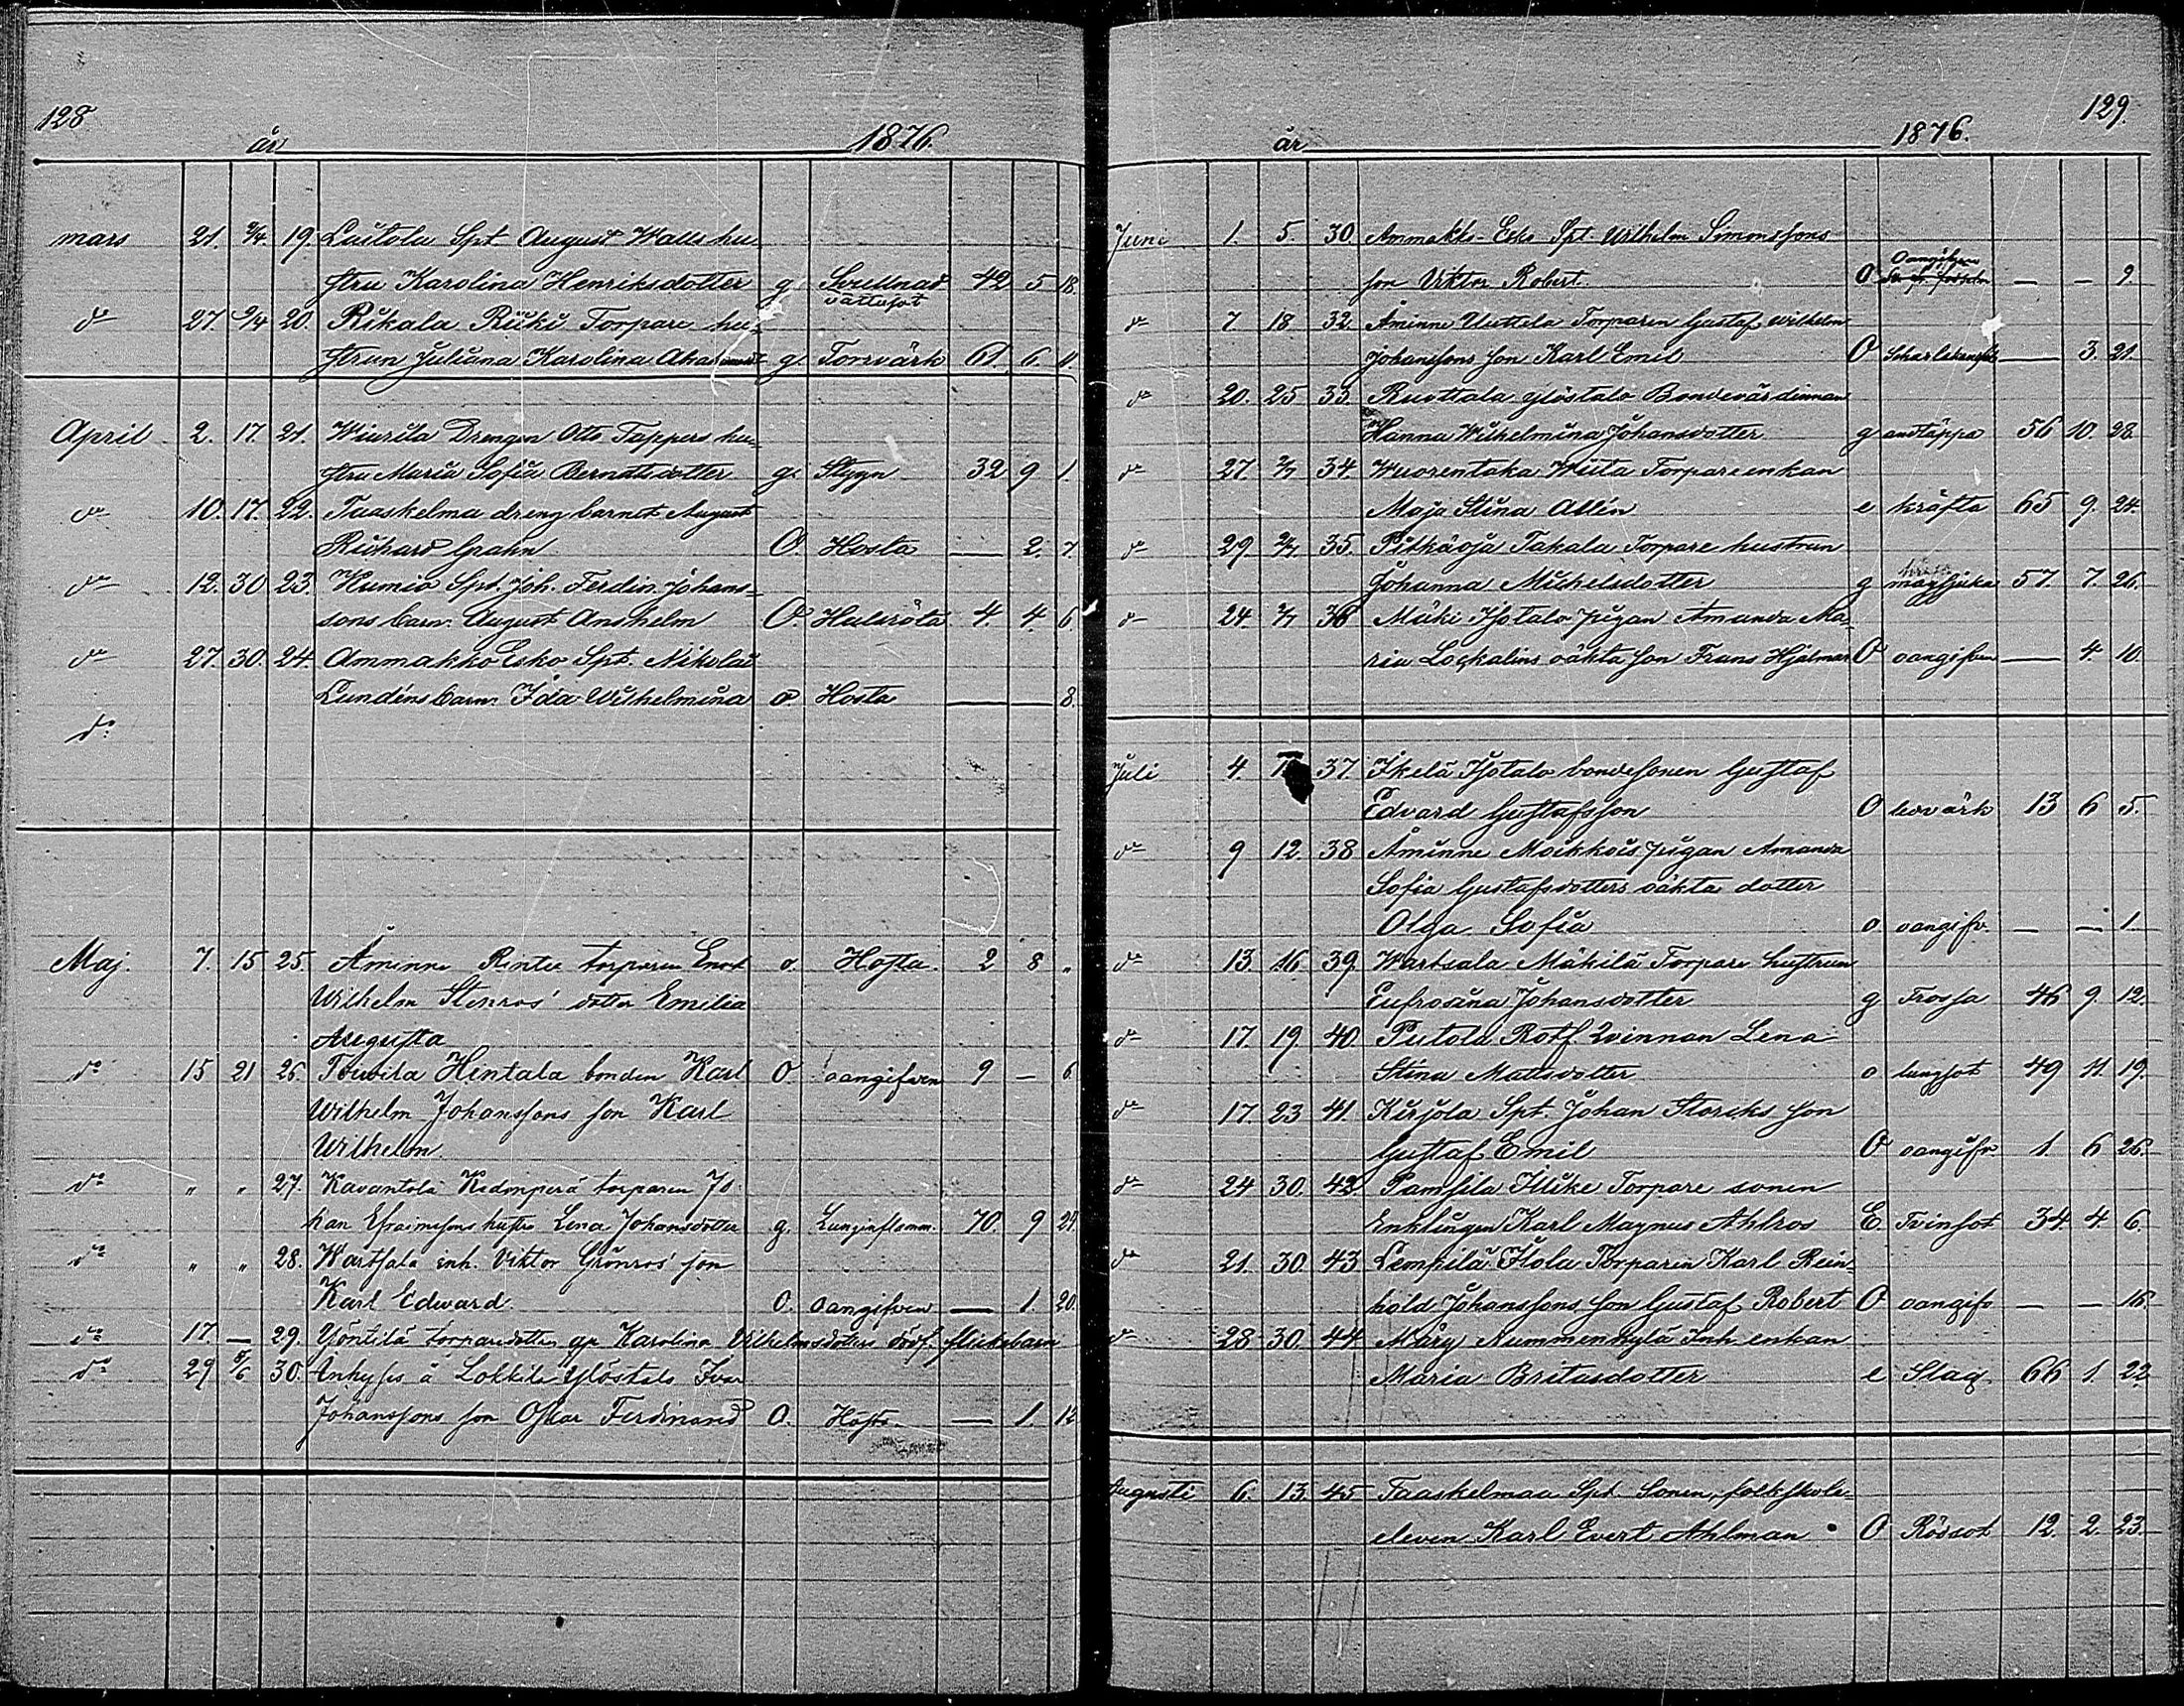 128
år 1876.
mars 21. 9/4 19. Luitola Spt August Walls hu-
stru Karolina Henriksdotter g Svullnad 42 5 18.
vattusot
do 27. 9/4 20. Rikala Riiki Torpare hu-
strun Juliana Karolina g. Torrvärk 61. 6. 11.
April 2. 17. 21. Wiurila Drengen Otto Tappers hu-
stru Maria Sofia Berndtsdotter g. Stygn 32 9 1.
do 10. 17. 22. Taaskelma dreng barnet August
Richard Grahn O. Hosta — 2. 7.
do 12. 30 23. Kumio Spt. Joh. Ferdin. Johans-
sons barn August Anshelm O. Halsröta 4. 4. 6.
do 27. 30. 24 Ammakko Esko Spt. Nikolai
Lundéns barn Ida Wilhelmina o Hosta — — 8.
do
Maj. 7. 15 25. Åminne Rinta torparen Enok o. Hosta. 2 8 „
Wilhelm Stenros' dotter Emilia
Augusta
do 15 21 26. Touvila Hentala bonden Karl O. oangifven 9 — 6.
Wilhelm Johanssons son Karl
Wilhelm
do „ „ 27. Kavantola torparen Jo-
han Efraimssons hustru Lena Johansdotter g. Lunginflamm. 70. 9 24.
do „ „ 28. Wartsala inh. Viktor Grönros' son
Karl Edward O. oangifven — 1. 20.
do 17. — 29. Yöntilä torparedottern ga Karolina Vilhelmsdotters dödf. flickebarn
do 29 5/6 30. Inhyses å Lokkila Ylöstalo Ivar
Johanssons son Oskar Ferdinand O. Hosta — 1. 12
129.
år 1876.
Juni 1. 5. 30. Ammakko-Esko Spt. Wilhelm Simonssons
oangifven
son Viktor Robert. O — — 9.
do 7 18 32. Åminne Uuttela Torparen Gustaf Wilhelm
Johanssons son Karl Emil O — 3. 21.
do 20. 25 33. Ruottala Ylöstalo Bondevärdinnan
Hanna Wilhelmina Johansdotter g andtäppa 56 10. 28
do 27 2/7 34. Wuorentaka Wiita Torpareenkan
Maja Stina Allén e kräfta 65 9. 24.
do 29. 2/7 35. Pitkäoja Takala Torpare hustrun
Johanna Michelsdotter g magsjuka 57. 7. 26.
do 24. 2/7 36 Mäki Isotalo pigan Amanda Ma-
ria Lockalins oäkta son Frans Hjalmar O oangifven — 4. 10.
Juli 4 37. Ikelä Isotalo bondesonen Gustaf
Edvard Gustafsson O lårvärk 13 6 5.
do 9 12. 38 Åminne Moikkois pigan Amanda
Sofia Gustafsdotters oäkta dotter
Olga Sofia o oangifv. — — 1.
do 13. 16 39. Wartsala Mäkilä Torpare hustrun
Eufrosina Johansdotter g Frossa 46 9. 12.
do 17. 19 40. Piitola Rotf. Qvinnan Lena
Stina Mattsdotter o lungsot 49 11. 19.
do 17. 23 41. Kirjola Spt. Johan Storcks son
Gustaf Emil O oangifv 1. 6 26.
do 24 30. 42. Pamsila Illike Torpare sonen
Enklingen Karl Magnus Ahlros E Tvinsot 34 4 6.
do 21. 30. 43 Lempilä Ilola Torparen Karl Rein-
hold Johanssons son Gustaf Robert O oangifv — — 16.
do 28 30. 44. Märy Nummenkylä Inh. enkan
Maria Britasdotter e Slag. 66 1. 22.
Augusti 6. 13. 45 Taaskelmaa Spt. Sonen, folkskole-
eleven Karl Evert Ahlman O Rödsot 12. 2. 23.